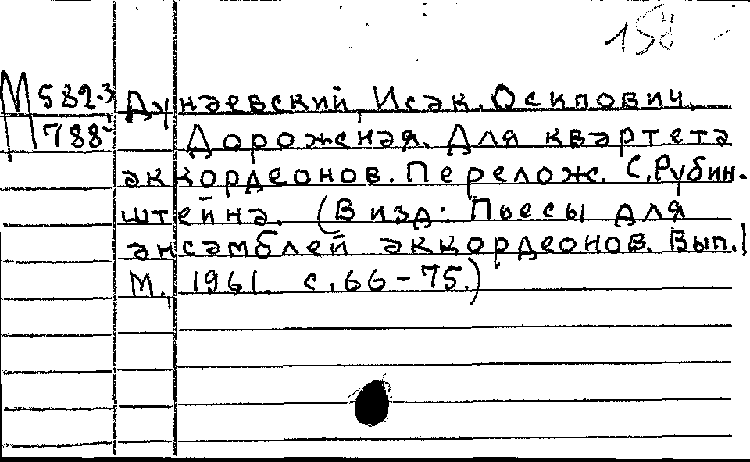 158
М 582.3 Дунаевский, Исак Осипович.
П 788 Дорожная. Для квартета
аккордеонов. Перелож. С. Рубин-
штейна. (В изд: Пьесы для
ансамблей аккордеонов. Вып. 1
М., 1961. с. 66-75.)